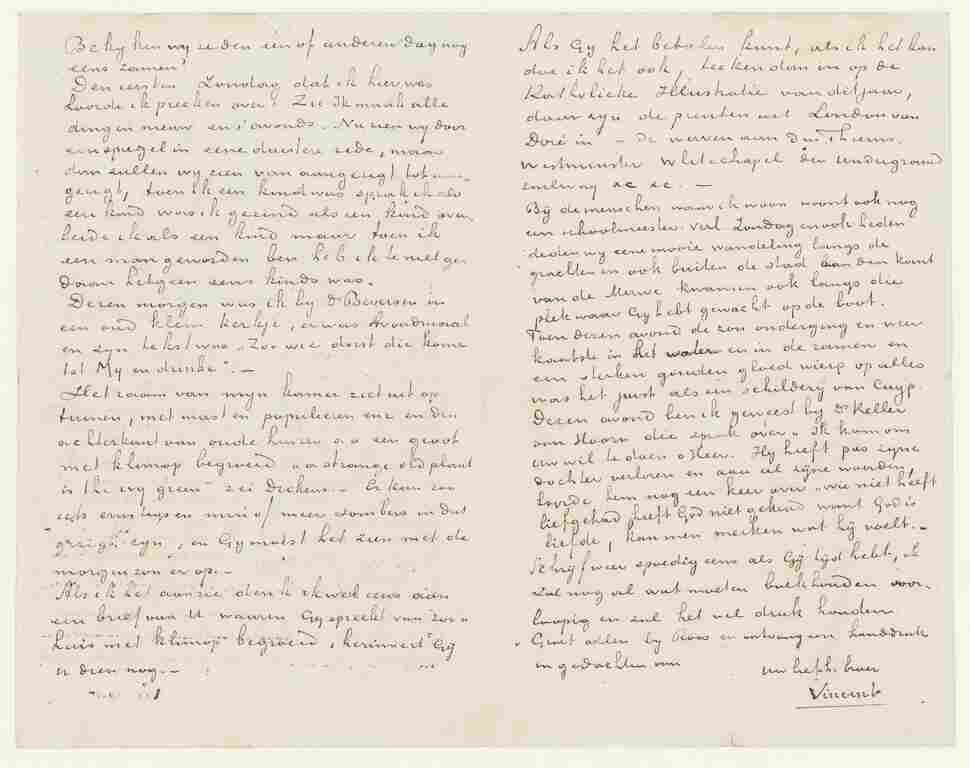 Bekijken wij ze den een of anderen dag nog
eens zamen!
Den eersten Zondag dat ik hier was
hoorde ik preeken over! Zie Ik maak alle
dingen nieuw en 's avonds. Nu zien wij door
een spiegel in eene duistere rede, maar
dan zullen wij zien van aangezigt tot aan-
gezigt, toen ik een kind was sprak ik als
een kind was ik gezind als een kind over
leide ik als een kind maar toen ik
een man geworden ben heb ik te niet ge
daan hetgeen eens kinds was.
Dezen morgen was ik bij Ds Beversen in
een oud klein kerkje, er was Avondmaal
en zijn tekst was „Zoo wie dorst die kome
tot My en drinke". —
Het raam van mijn kamer ziet uit op
tuinen, met mast en populieren enz en den
achterkant van oude huizen o.a een goot
met klimop begroeid „a strange old plant
is the ivy green" zei Dickens. — Er kan zoo
iets ernstigs en min of meer sombers in dat
gezigt zijn, en Gy moest het zien met de
morgenzon er op. —
Als ik het aanzie denk ik wel eens aan
een brief van U waarin Gy spreekt van zoo'n
huis met klimop begroeid, herinnert Gy
U dien nog. —
Als Gy het betalen kunt, als ik het kan
doe ik het ook, teeken dan in op de
Katholieke Illustratie van dit jaar,
daar zijn de prenten uit London van
Doré in — de werven aan den Theems.
Westminster Whitechapel den Underground
railway &c &c. —
Bij de menschen waar ik woon woont ook nog
een schoolmeester verl. Zondag en ook heden
deden wij eene mooie wandeling langs de
grachten en ook buiten de stad aan den kant
van de Merwe kwamen ook langs die
plek waar Gy hebt gewacht op de boot.
Toen dezen avond de zon onderging en weer
kaatste in het water en in de ramen en
een sterken gouden gloed wierp op alles
was het juist als een schilderij van Cuyp.
Dezen avond ben ik geweest bij Ds Keller
van Hoorn die sprak over „Ik kom om
Uw wil te doen o Heer. Hy heeft pas zijne
dochter verloren en aan al zijne woorden,
hoorde hem nog een keer over „wie niet heeft
liefgehad heeft God niet gekend want God is
liefde, kan men merken wat hij voelt. —
Schrijf weer spoedig eens als Gij tijd hebt, ik
zal nog al wat moeten boekhouden voor-
loopig en zal het wel druk houden
Groet allen by Roos en ontvang een handdruk
in gedachten van
uw liefh. broer
Vincent